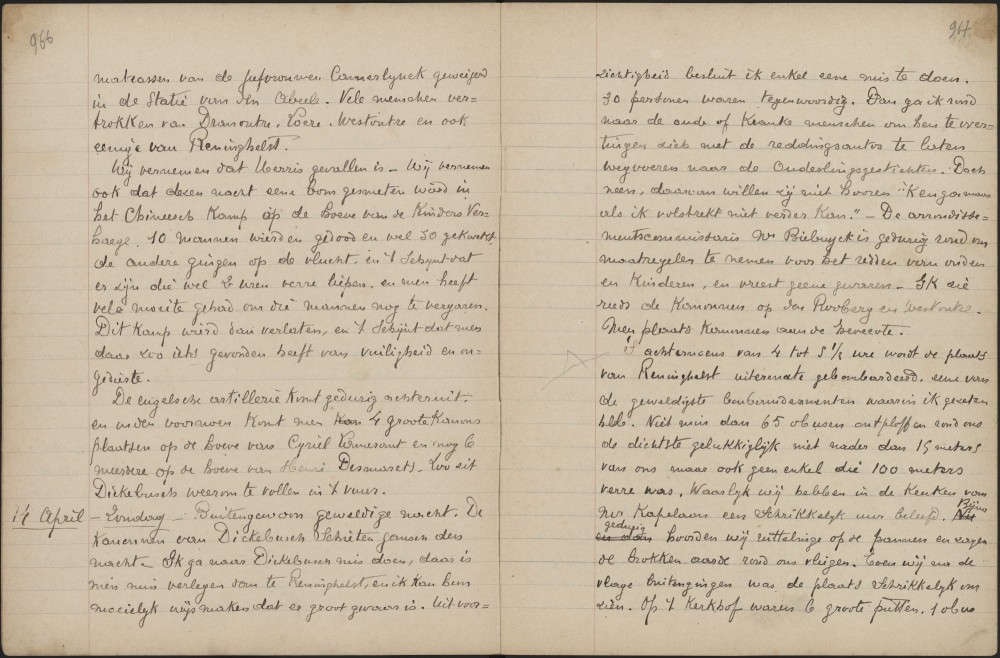 966
matrassen van de Jufvrouwen Camerlynck geweigerd
in de Statie van den Abeele. Vele menschen ver=
trokken van Dranoutre, Locre, Westoutre en ook
eenige van Reninghelst.
Wij vernemen dat Merris gevallen is – Wij vernemen
ook dat dezen nacht eene bom gesmeten wierd in
het Chineesch Kamp op de hoeve van de Kinders Ver=
haege. 10 mannen wierden gedood en wel 30 gekwetst
de andere gingen op de vlucht, en 't schijnt dat
er zijn die wel 2 uren verre liepen, en men heeft
vele moeite gehad om die mannen nog te vergaren.
Dit Kamp wierd dan verlaten, en 't schijnt dat men
daar zoo iets gevonden heeft van vuiligheid en on=
gedierte.
De engelsche artillerie komt gedurig achteruit.
en in den voornoen komt men 4 groote Kanons
plaatsen op de hoeve van Cyriel Lamerant en nog 6
meerdere op de hoeve van Henri Desmarets. Zoo zit
Dickebusch weerom te vollen in 't vuur.
14 April – Zondag – Buitengewoon geweldige nacht. De
Kanonnen van Dickebusch schieten gansch den
nacht. Ik ga naar Dickebusch mis doen, daar is
men min verlegen dan te Reninghelst, en ik kan hun
moeielijk wijs maken dat er groot gevaar is. Uit voor=
94
zichtigheid besluit ik enkel eene mis te doen.
30 personen waren tegenwoordig. Dan ga ik rond
naar de oude of Kranke menschen om hen te over=
tuigen zich met de reddingsautos te laten
wegvoeren naar de Ouderlingsgestichten. Doch
neen, daarvan willen zij niet hooren "Ken gaan maar
als ik volstrekt niet verder kan." – De arrondisse=
mentscommissaris Mr Biebuyck is gedurig rond om
maatregelen te nemen voor het redden van ouden
en Kinderen, en vreest geene gevaren – Ik zie
reeds de Kanonnen op den Rooberg en Westoutre.
Men plaats Kanonnen aan de hevecote.
't achternoens van 4 tot 5 1/2 ure wordt de plaats
van Reninghelst uitermate gebombardeerd. eene van
de geweldigste bombardementen waarin ik gezeten
heb. Niet min dan 65 obussen ontploffen rond ons
de dichtste gelukkiglijk niet nader dan 15 meters
van ons maar ook geen enkel die 100 meters
verre was. Waarlijk wij hebben in de Keuken van
Mr Kapelaan een schrikkelijk uur beleefd. Bijna
gedurig hoorden wij zuttelinge op de pannen en zagen
de brokken aarde rond ons vliegen. Toen wij na de
vlage buitengingen was de plaats schrikkelijk om
zien. Op 't Kerkhof waren 6 groote putten. 1 obus